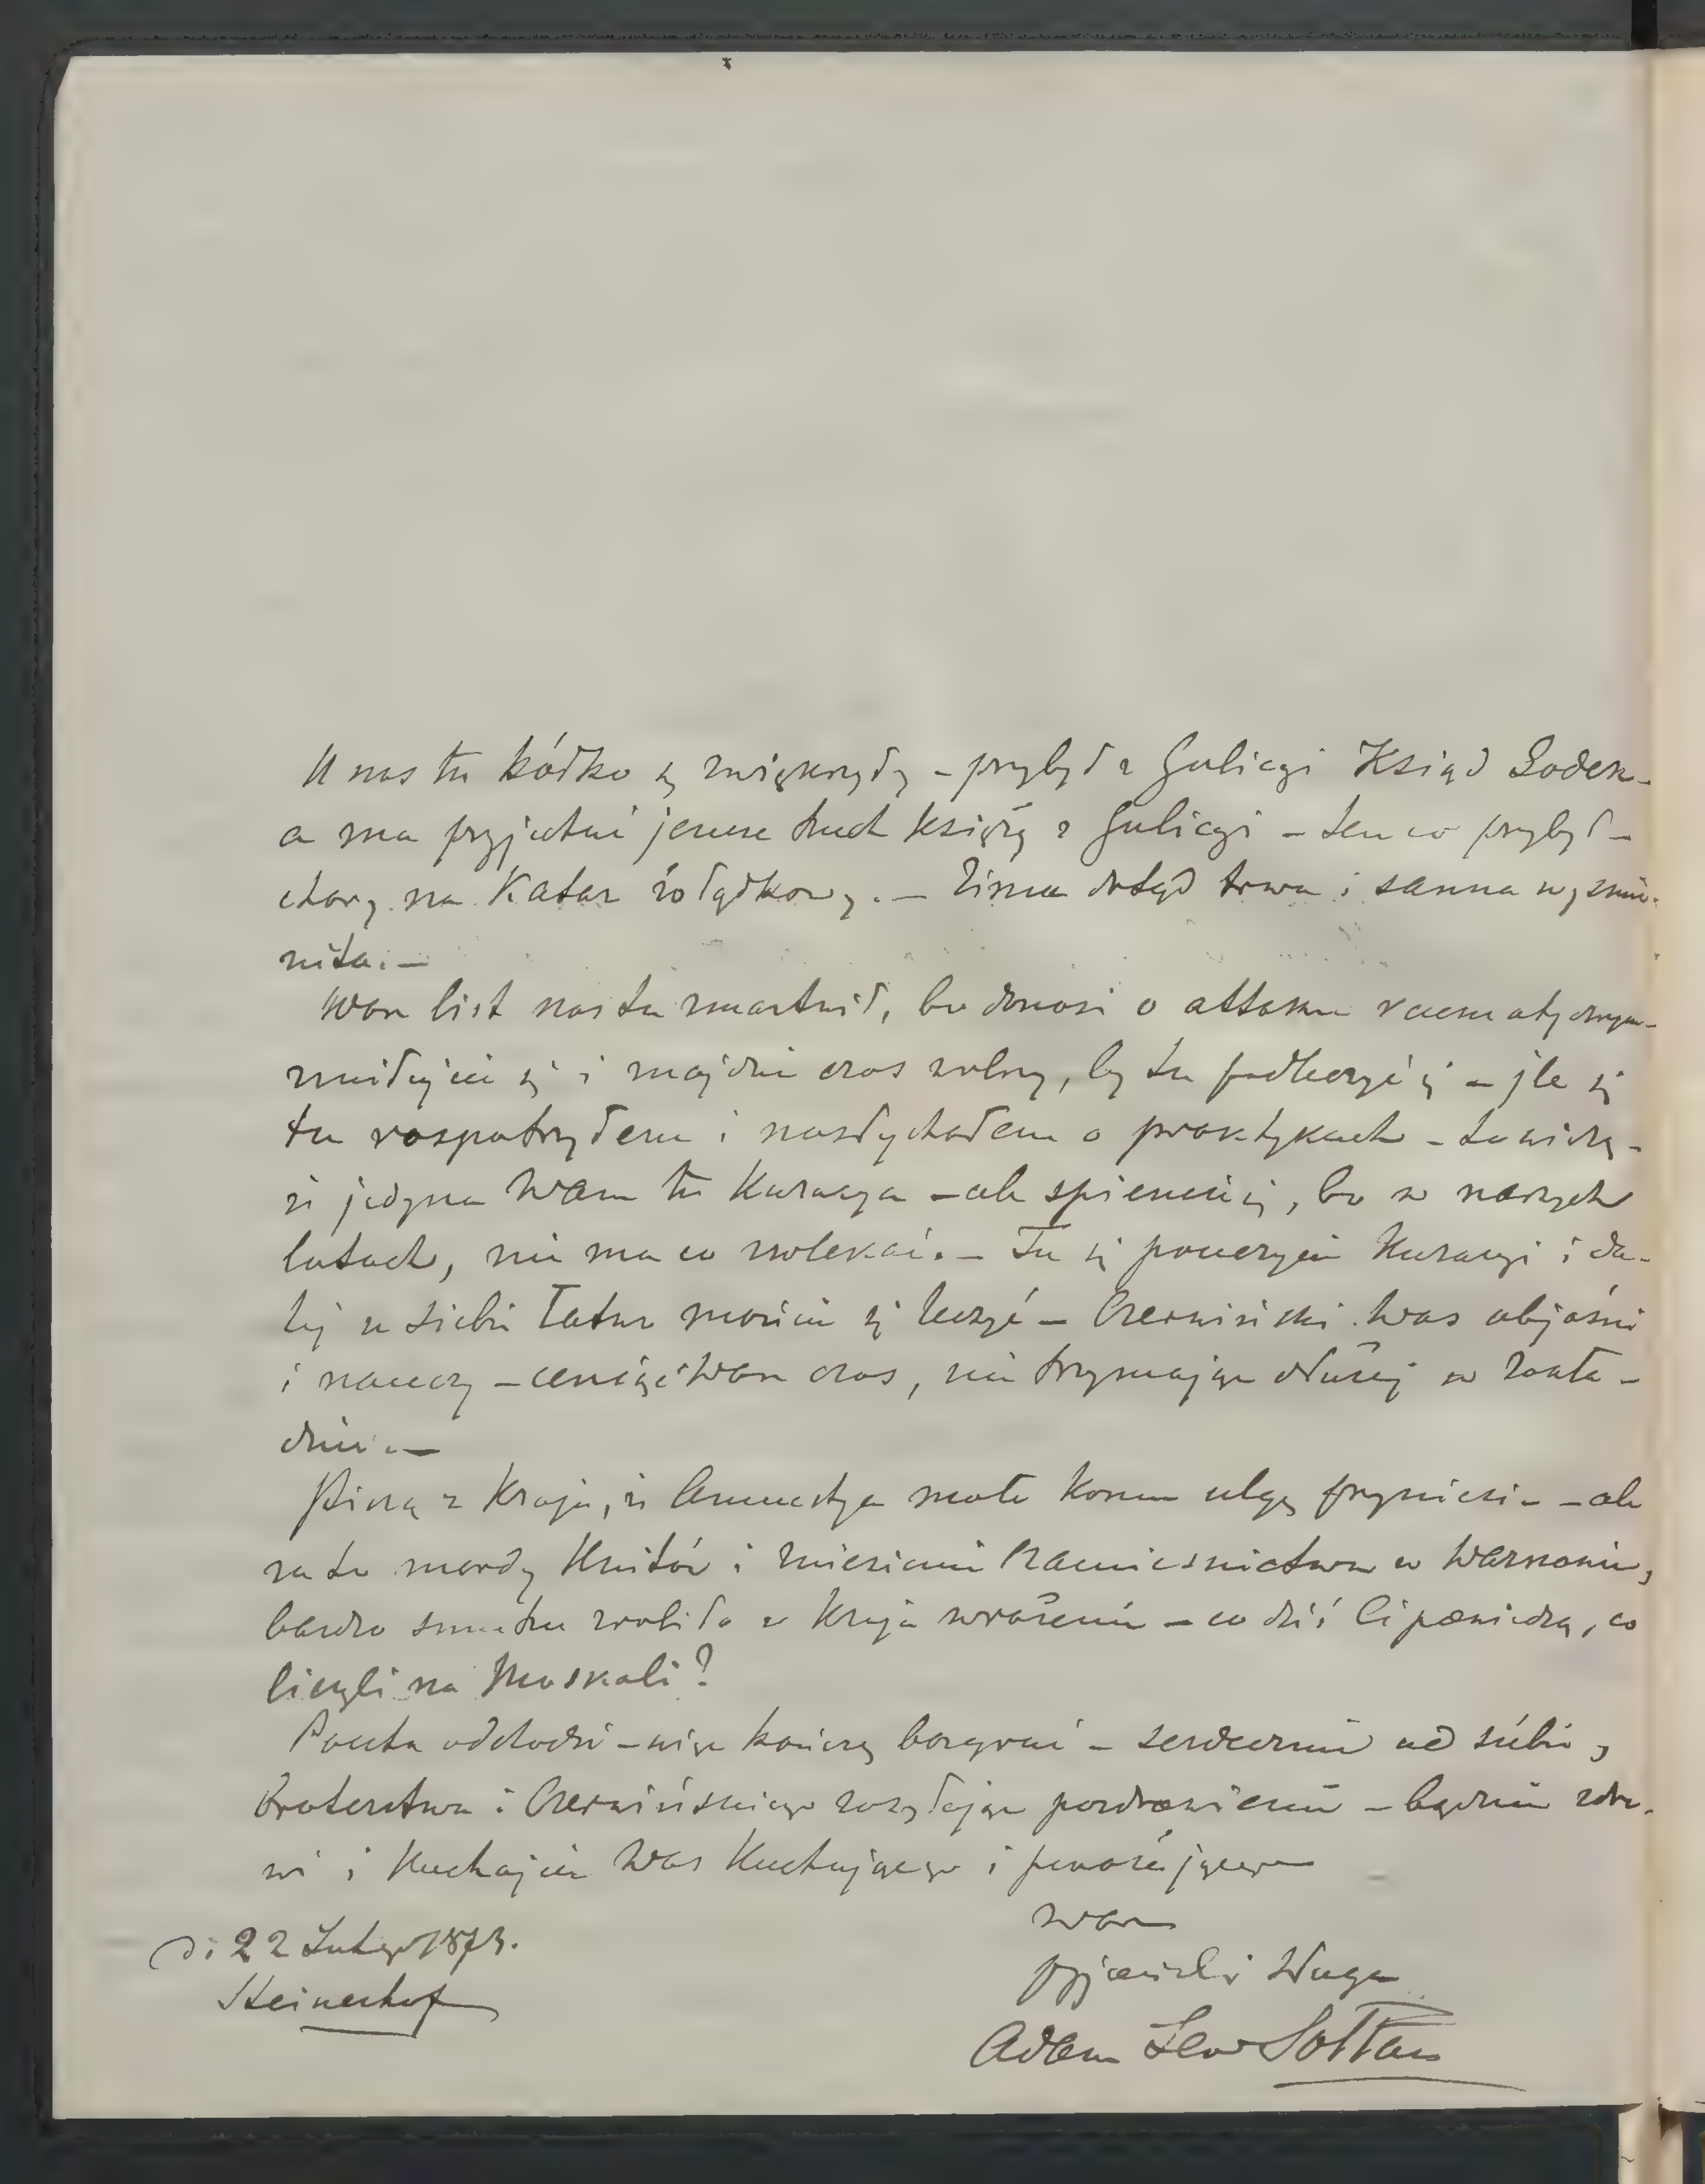 U nas tu kółko się zwiększyły – przybył z Galicyi Ksiąd Sodek –
a ma przyjechać jeszcze trzech księży z Galicyi – ten co przybył –
chory na Katar żołądkowy. – Zima dotąd trwa i sanna wyśmie-
nita. –
Wasz list nas tu zmartwił, bo donosi o attaku reumatycznym –
zmiłujcie się i znajdźcie czas wolny, by tu podleczyć się – ile się
tu rospatrzyłem i nasłychałem o praktykach – to widzę –
że jedyna Wam tu Kuracya – ale spieszcie się, bo w naszych
latach, nie ma co zwlekać. – Tu się pouczycie Kuracyi i da-
lej u siebie łatwo możecie się leczyć – Czerwiński Was objaśni
i nauczy – ceniąc Wasz czas, nie trzymając dłużej w Zakła-
dzie. –
Piszą z Kraju, że Amnestya może komu ulgę przyniesie – ale
za to mordy Unitów i zniesienie Namiesnictwa w Warszawie,
bardzo smutne zrobiło w Kraju wrażenie – co dziś Ci powiedzą, co
liczyli na Moskali?
Poczta odchodzi – więc kończę bazgrać – serdecznie od siebie,
Braterstwa i Czerwińskiego zasyłając pozdrowienie – bądźcie zdro-
wi i Kochajcie Was Kochającego i poważającego
Wasz
przyjaciel i Sługa
Adam Lew Sołtan
D: 22 Lutego 187
Steinerhof